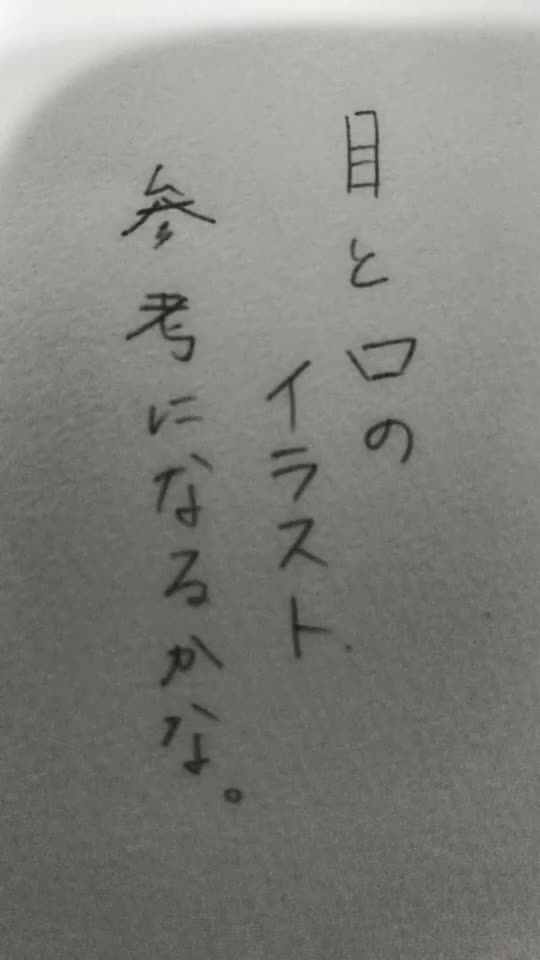 目と口の
イラスト
参考になるかな。